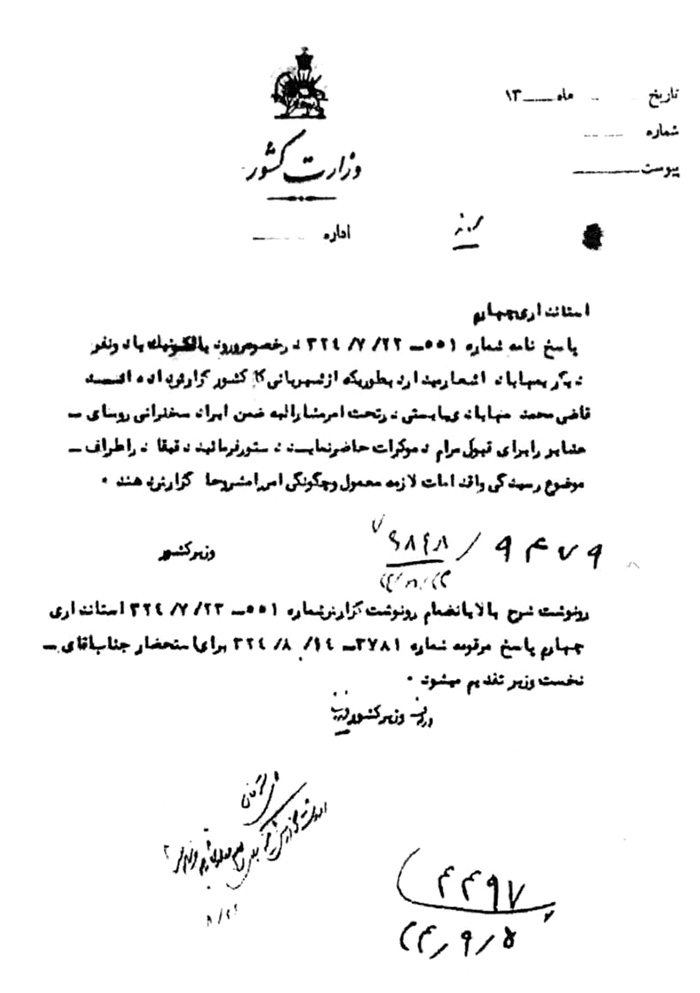 تاریخ ماه ۱۳
شماره
پیوست
وزارت کشور
اداره
استانداری چهارم
پاسخ نامه شماره ۵۵۱ــ ۲۲/ ۷/ ۳۲٤ در خصوص ورود با دو نفر
دیگر بمهاباد اشعار میدارد بطوریکه از شهربانی کل کشور گزارش داده اند
قاضی محمد مهابادی بایستی در تحت امر مشارالیه ضمن ایراد سخنرانی روسای ــ
عشایر را برای قبول مرام دموکرات حاضر نمایند دستور فرمائید دقیقا در اطراف ــ
موضوع رسیدگی و اقدامات لازمه معمول و چگونگی امر را مشروحا گزارش دهند .
وزیر کشور
رونوشت شرح بالا بانضمام رونوشت گزارش شماره ۵۵۱ــ ۲۳/ ۷/ ۳۲٤ استانداری
چهارم پاسخ مرقومه شماره ۳۷۸۱ــ ۱٤/ ۸/ ۳۲٤ برای استحضار جناب اقای ــ
نخست وزیر تقدیم میشود .
وزیر کشور
۴۴۹۷
۲۴/۹/۵